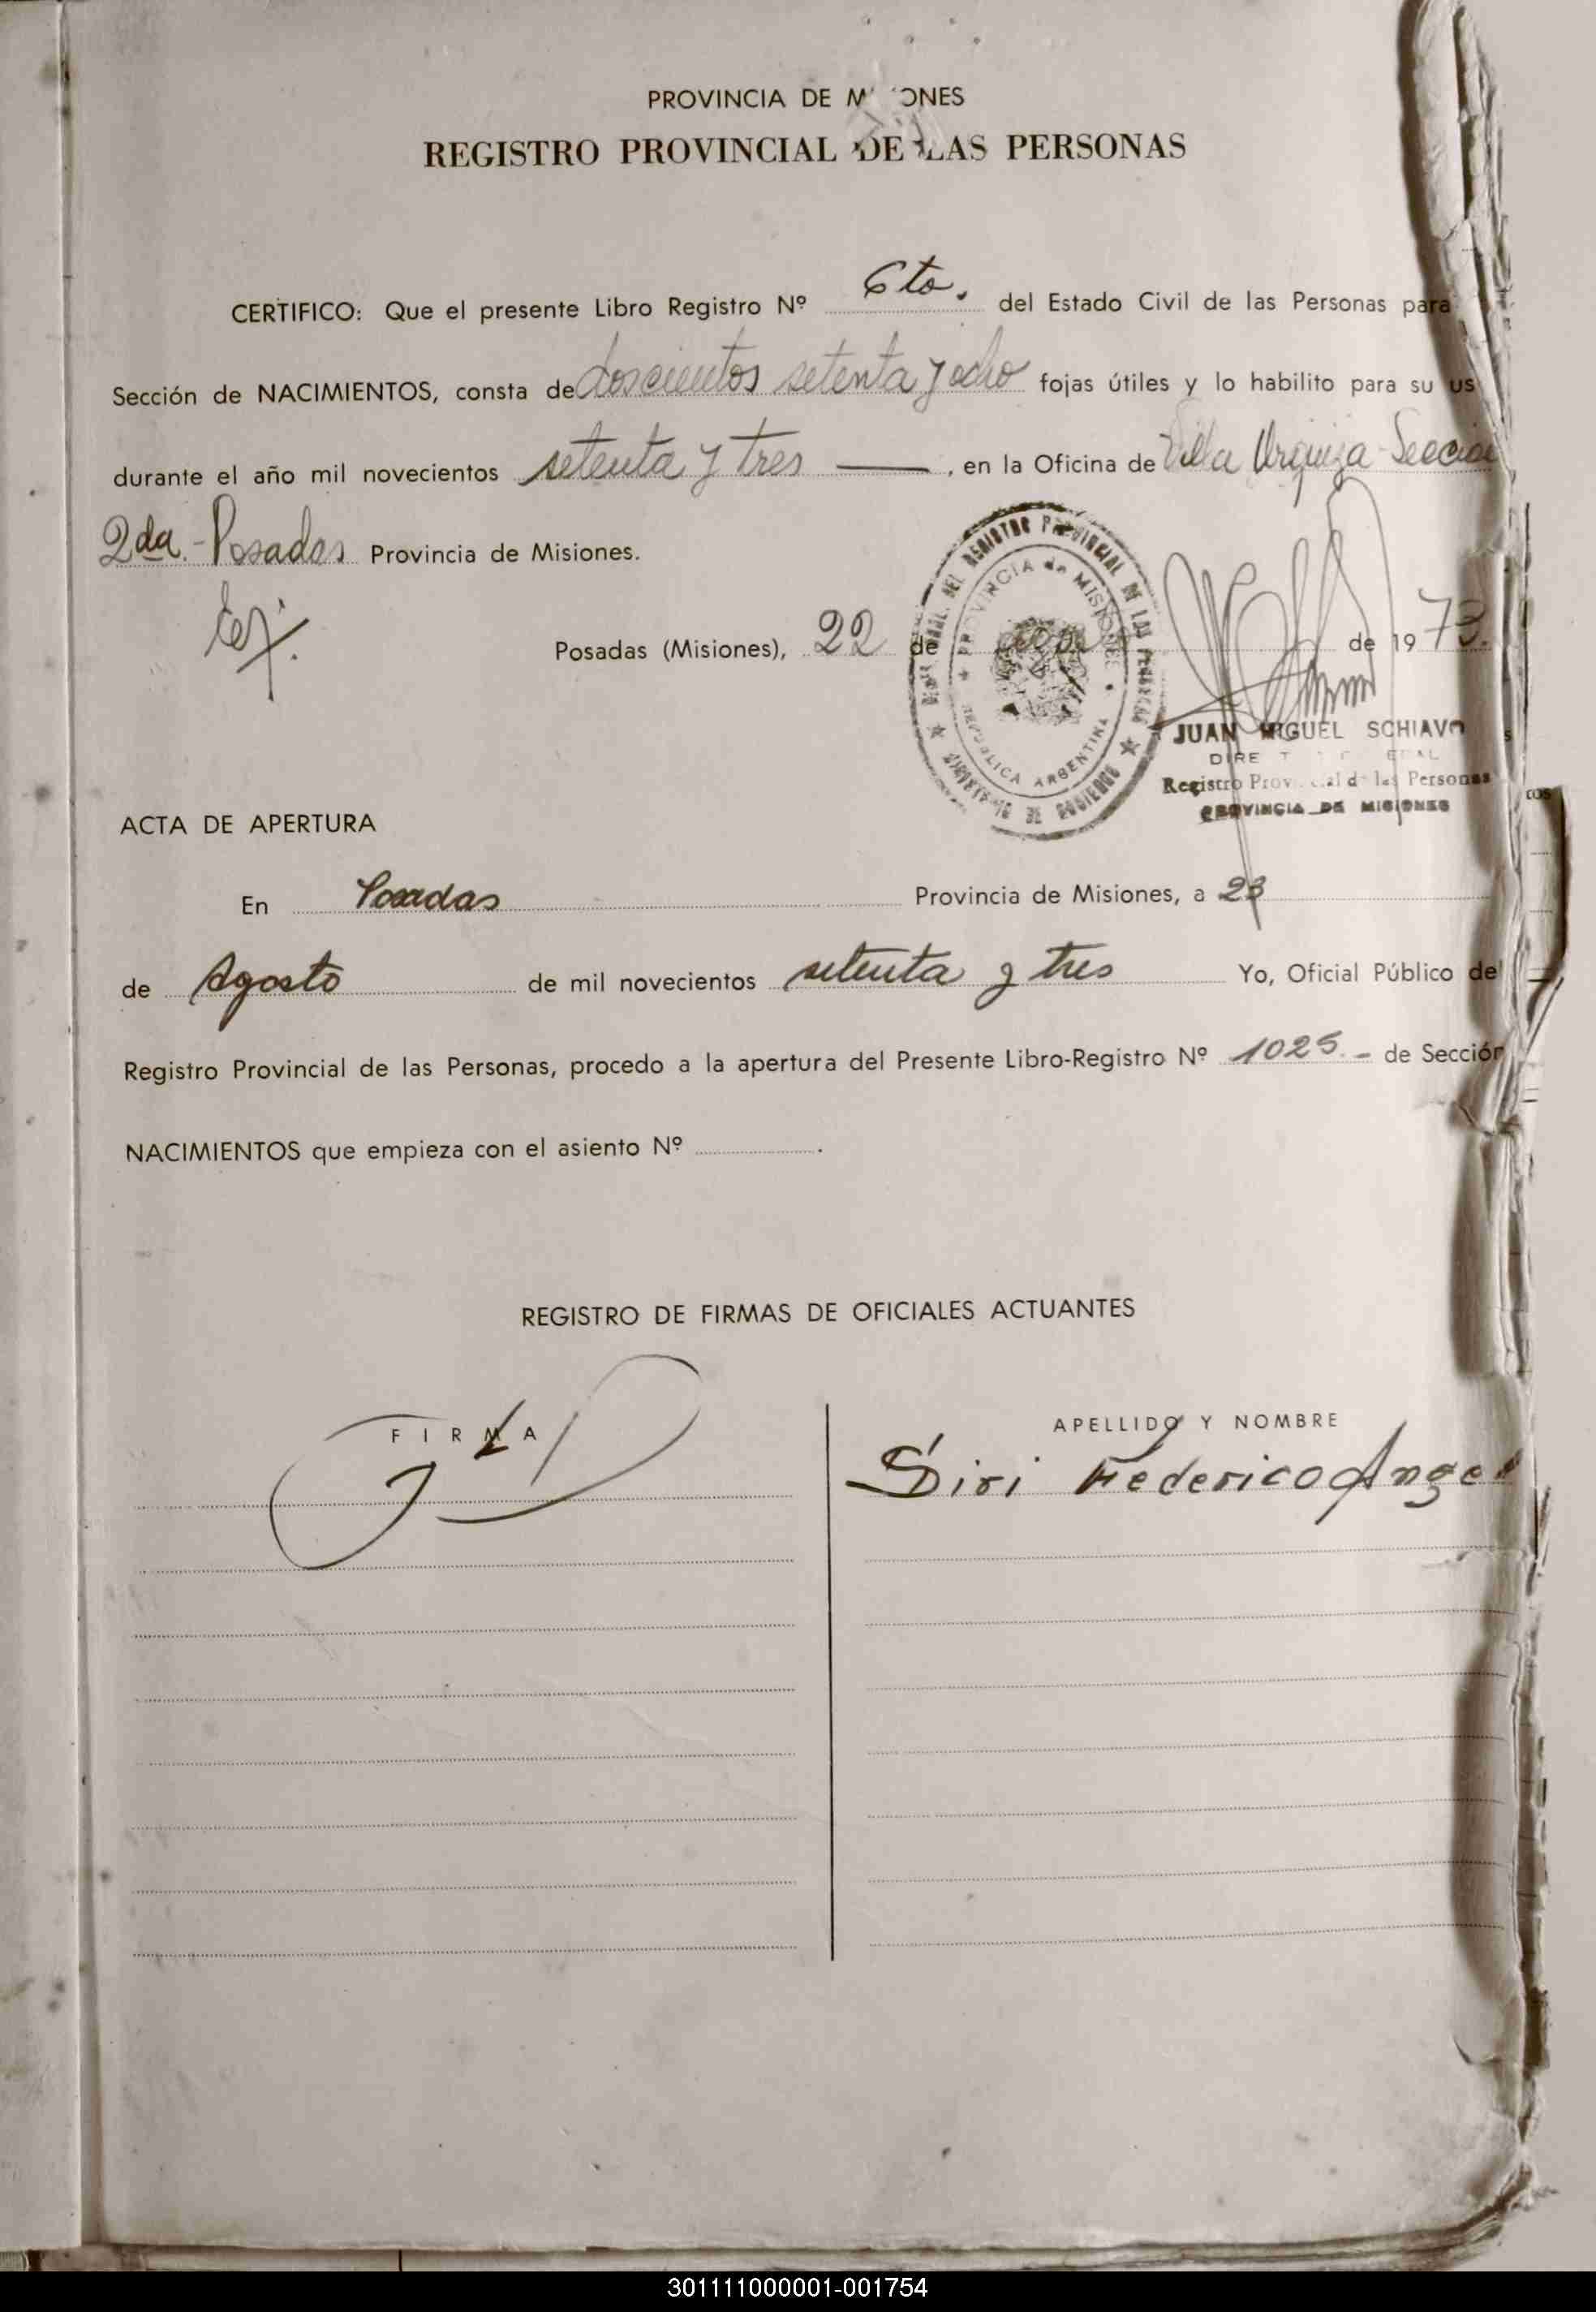 PROVINCIA DE M ONES
REGISTRO PROVINCIAL DE LAS PERSONAS
CERTIFICO: Que el presente Libro Registro Nº 6to. del Estado Civil de las Personas para
Sección de NACIMIENTOS, consta de doscientos setenta y ocho fojas útiles y lo habilito para su us
durante el año mil novecientos setenta y tres —, en la Oficina de Villa Urquiza Sección
2da.- Posadas Provincia de Misiones.
Posadas (Misiones), 22 de de 1973.
PROVINCIA de MISIONES
REPUBLICA ARGENTINA
JUAN MIGUEL SCHIAVO
Registro Provincial de las Personas
PROVINCIA DE MISIONES
ACTA DE APERTURA
En Posadas Provincia de Misiones, a 23
de Agosto de mil novecientos setenta y tres Yo, Oficial Público del
Registro Provincial de las Personas, procedo a la apertura del Presente Libro-Registro Nº 1025.- de Sección
NACIMIENTOS que empieza con el asiento Nº .
REGISTRO DE FIRMAS DE OFICIALES ACTUANTES
FIRMA
APELLIDO Y NOMBRE
Siri Federico Angel
301111000001-001754